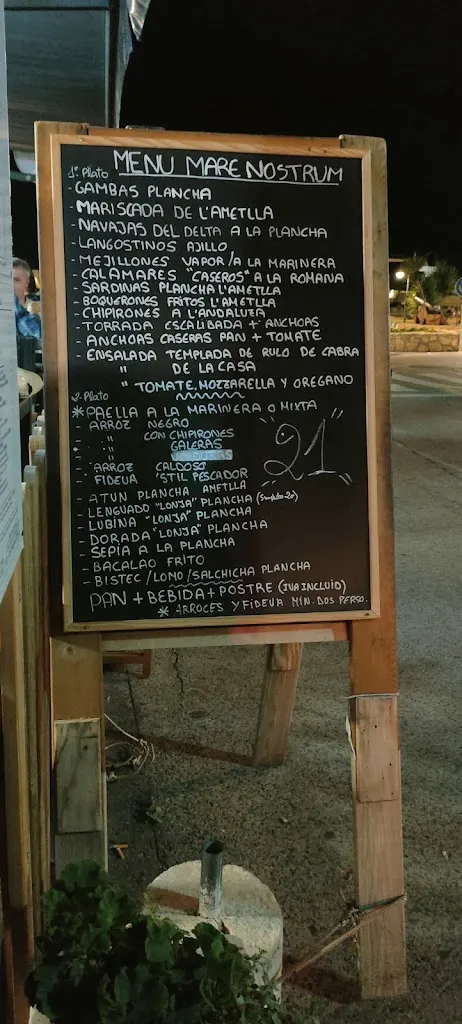 MENU MARE NOSTRUM
1º Plato
- GAMBAS PLANCHA
- MARISCADA DE L'AMETLLA
- NAVAJAS DEL DELTA A LA PLANCHA
- LANGOSTINOS AJILLO
- MEJILLONES VAPOR/A LA MARINERA
- CALAMARES "CASEROS" A LA ROMANA
- SARDINAS PLANCHA L'AMETLLA
- BOQUERONES FRITOS L'AMETLLA
- CHIPIRONES A L'ANDALUZA
- TORRADA ESCALIBADA + ANCHOAS
- ANCHOAS CASERAS PAN + TOMATE
- ENSALADA TEMPLADA DE RULO DE CABRA
" DE LA CASA
" TOMATE, MOZZARELLA Y OREGANO
2º Plato
* PAELLA A LA MARINERA O MIXTA
- ARROZ NEGRO
- " CON CHIPIRONES
- " GALERAS
- ARROZ CALDOSO
- FIDEUA "STIL PESCADOR
- ATUN PLANCHA AMETLLA
- LENGUADO "LONJA" PLANCHA
- LUBINA "LONJA" PLANCHA
- DORADA "LONJA" PLANCHA
- SEPIA A LA PLANCHA
- BACALAO FRITO
- BISTEC/LOMO/SALCHICHA PLANCHA
"21"
PAN + BEBIDA + POSTRE (IVA INCLUID)
* ARROCES Y FIDEUA MIN. DOS PERSO.